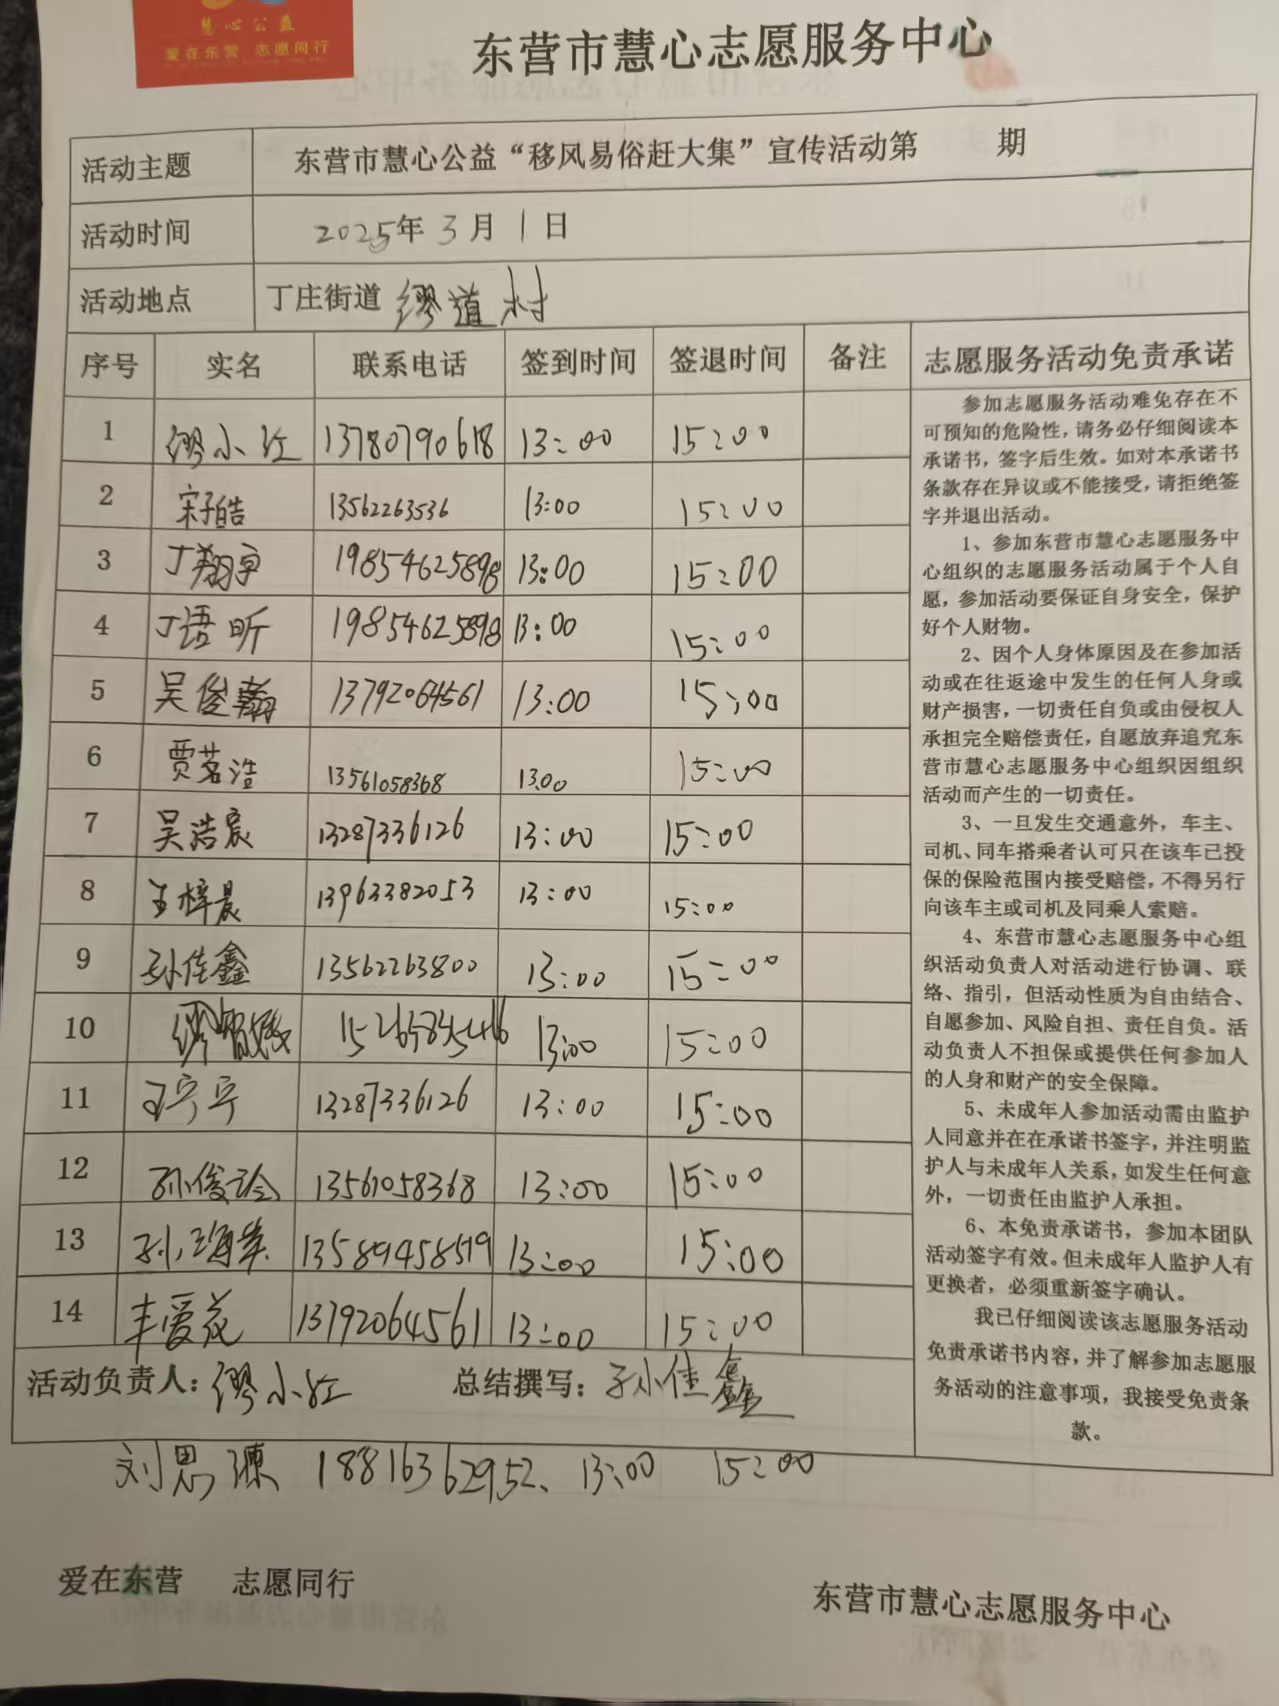 慧心公益
爱在东营 志愿同行
东营市慧心志愿服务中心
活动主题 东营市慧心公益“移风易俗赶大集”宣传活动第 期
活动时间 2025年3月1日
活动地点 丁庄街道 缪道村
序号 实名 联系电话 签到时间 签退时间 备注
1 缪小红 13780790618 13:00 15:00
2 宋子皓 13562263536 13:00 15:00
3 丁翔宇 19854625898 13:00 15:00
4 丁语昕 19854625898 13:00 15:00
5 吴俊翰 13792064561 13:00 15:00
6 贾茗浩 13561058368 13:00 15:00
7 吴浩宸 13287336126 13:00 15:00
8 王梓晨 13963382053 13:00 15:00
9 孙佳鑫 13562263800 13:00 15:00
10 缪 13:00 15:00
11 王宁宁 13287336126 13:00 15:00
12 孙俊 13561058368 13:00 15:00
13 孙海 13589458519 13:00 15:00
14 丰爱花 13792064561 13:00 15:00
活动负责人：缪小红 总结撰写：孙佳鑫
刘思 18816362952、 13:00 15:00
志愿服务活动免责承诺
参加志愿服务活动难免存在不
可预知的危险性，请务必仔细阅读本
承诺书，签字后生效。如对本承诺书
条款存在异议或不能接受，请拒绝签
字并退出活动。
1、参加东营市慧心志愿服务中
心组织的志愿服务活动属于个人自
愿，参加活动要保证自身安全，保护
好个人财物。
2、因个人身体原因及在参加活
动或在往返途中发生的任何人身或
财产损害，一切责任自负或由侵权人
承担完全赔偿责任，自愿放弃追究东
营市慧心志愿服务中心组织因组织
活动而产生的一切责任。
3、一旦发生交通意外，车主、
司机、同车搭乘者认可只在该车已投
保的保险范围内接受赔偿，不得另行
向该车主或司机及同乘人索赔。
4、东营市慧心志愿服务中心组
织活动负责人对活动进行协调、联
络、指引，但活动性质为自由结合、
自愿参加、风险自担、责任自负。活
动负责人不担保或提供任何参加人
的人身和财产的安全保障。
5、未成年人参加活动需由监护
人同意并在在承诺书签字，并注明监
护人与未成年人关系，如发生任何意
外，一切责任由监护人承担。
6、本免责承诺书，参加本团队
活动签字有效。但未成年人监护人有
更换者，必须重新签字确认。
我已仔细阅读该志愿服务活动
免责承诺书内容，并了解参加志愿服
务活动的注意事项，我接受免责条
款。
爱在东营 志愿同行
东营市慧心志愿服务中心